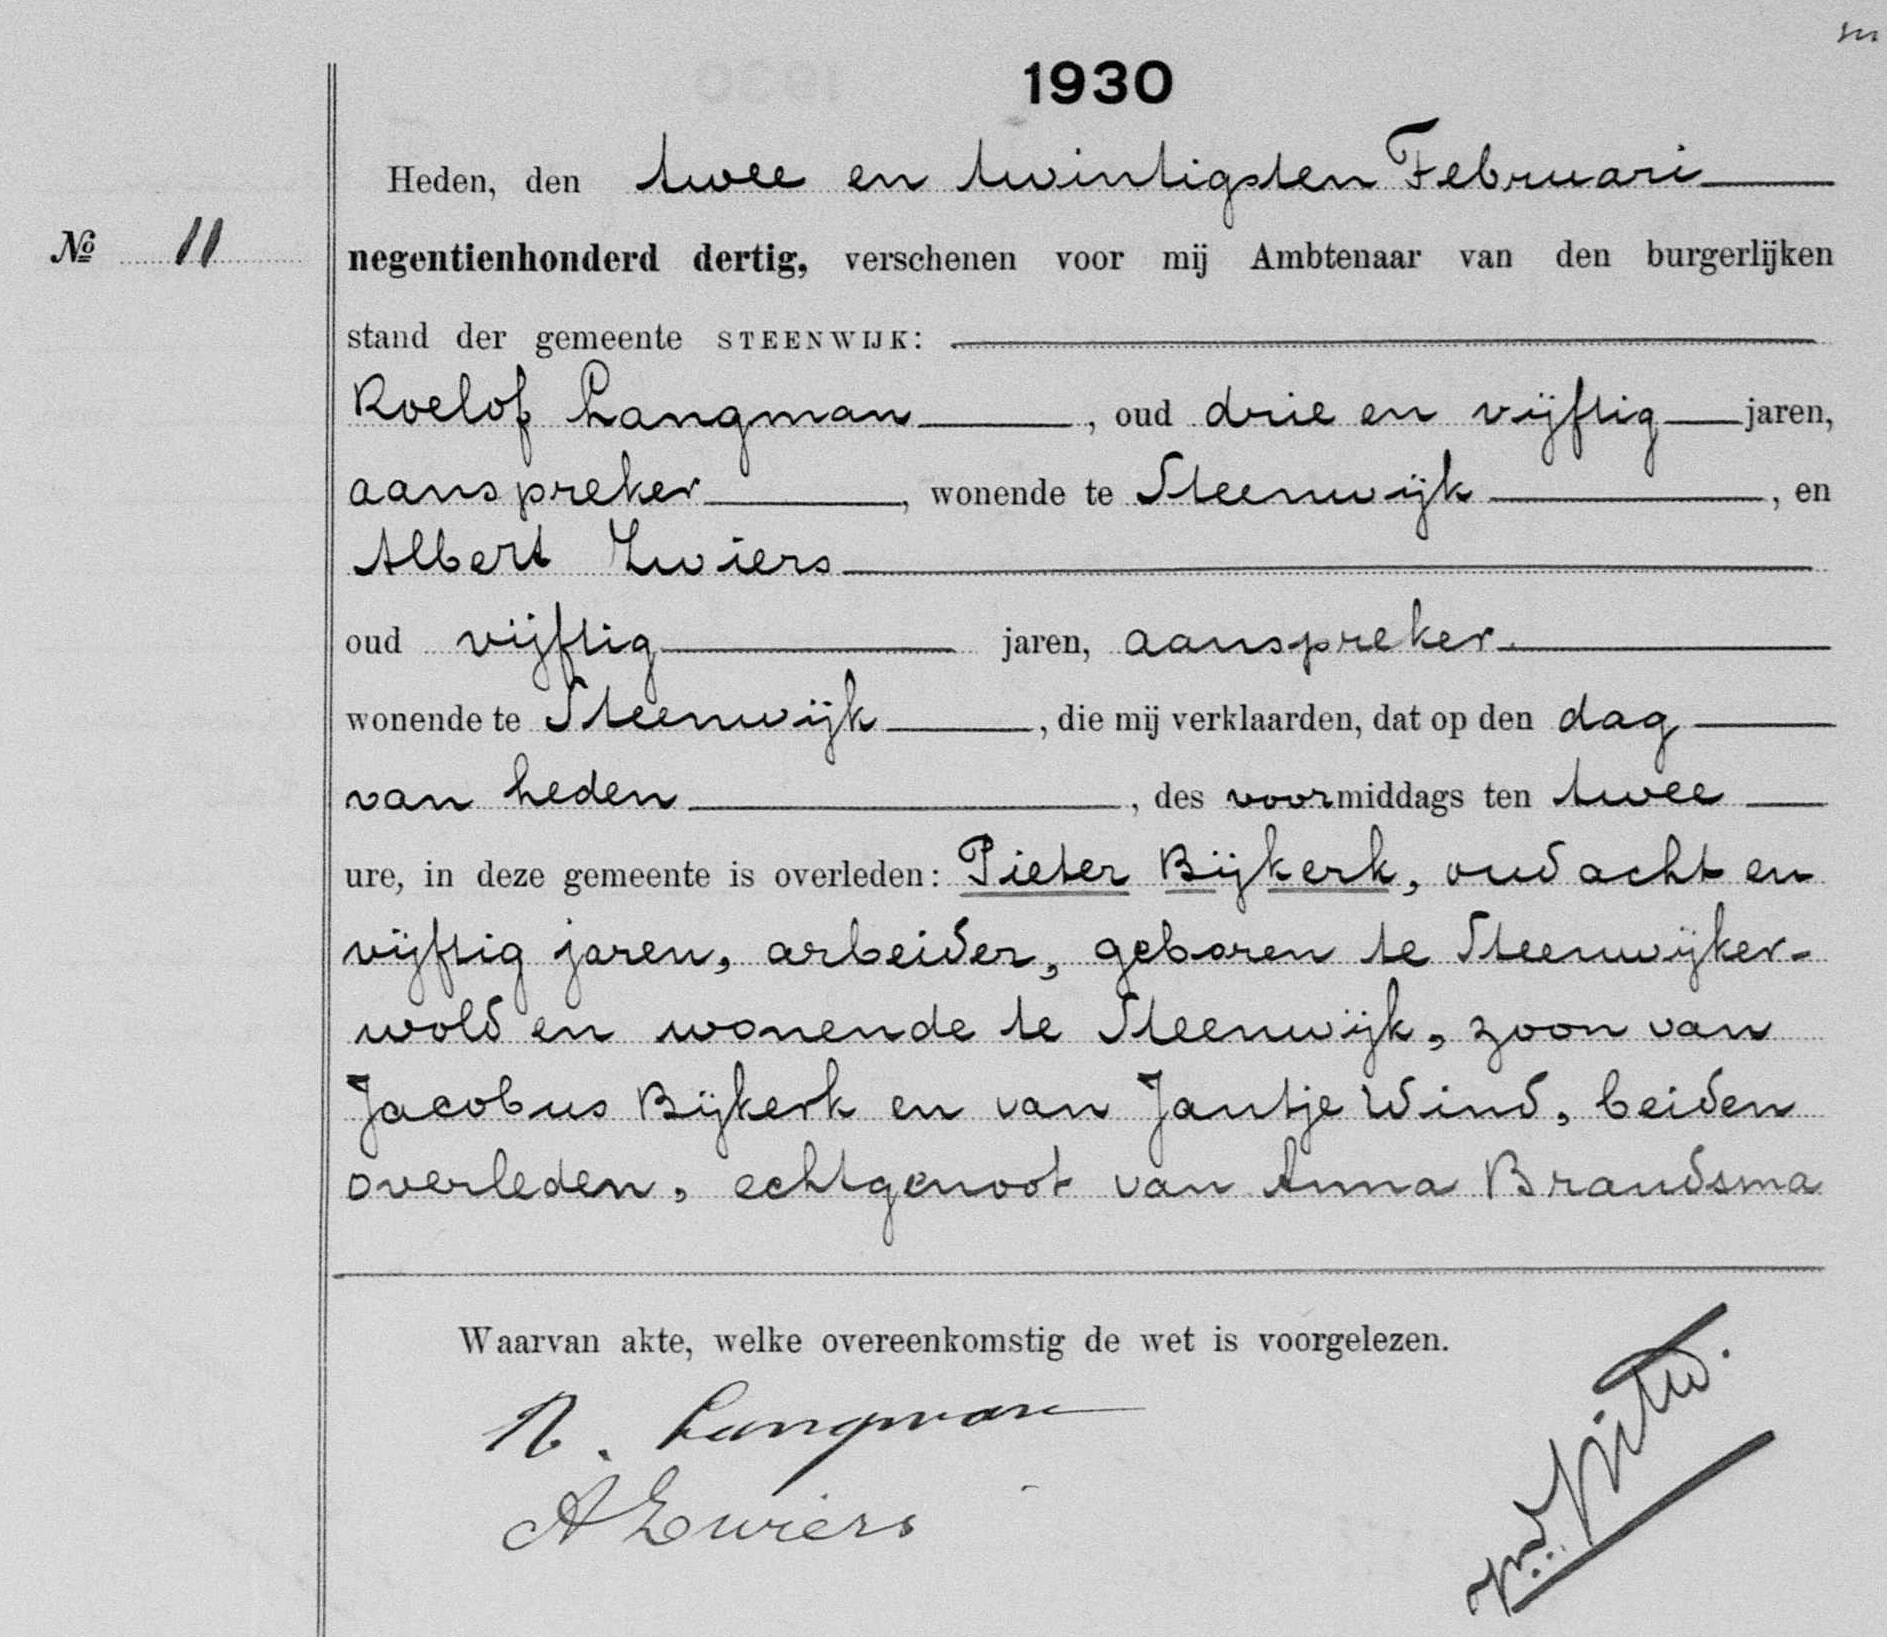 1930
Heden, den twee en twintigsten Februari
No 11
negentienhonderd dertig, verschenen voor mij Ambtenaar van den burgerlijken
stand der gemeente STEENWIJK:
Roelof Langman, oud drie en vijftig jaren,
aanspreker, wonende te Steenwijk, en
Albert Zwiers
oud vijftig jaren, aanspreker.
wonende te Steenwijk, die mij verklaarden, dat op den dag
van heden, des voormiddags ten twee
ure, in deze gemeente is overleden: Pieter Bijkerk, oud acht en
vijftig jaren, arbeider, geboren te Steenwijker-
wold en wonende te Steenwijk, zoon van
Jacobus Bijkerk en van Jantje Wind, beiden
overleden, echtgenoot van Anna Brandsma
Waarvan akte, welke overeenkomstig de wet is voorgelezen.
R. Langman
A Zwiers